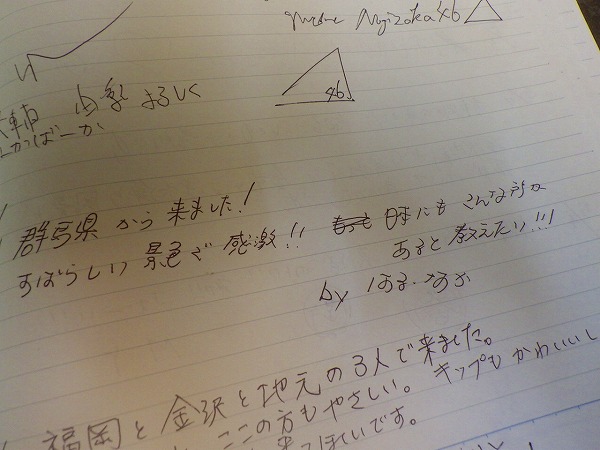 Nogizaka46
46
よろしく
群馬県から来ました!
すばらしい景色で感激!!
日本にもこんな所が
あると教えたい!!!
by はる・なか
福岡と金沢と地元の3人で来ました。
ここの方もやさしい。キップもかわいいし
来てほしいです。